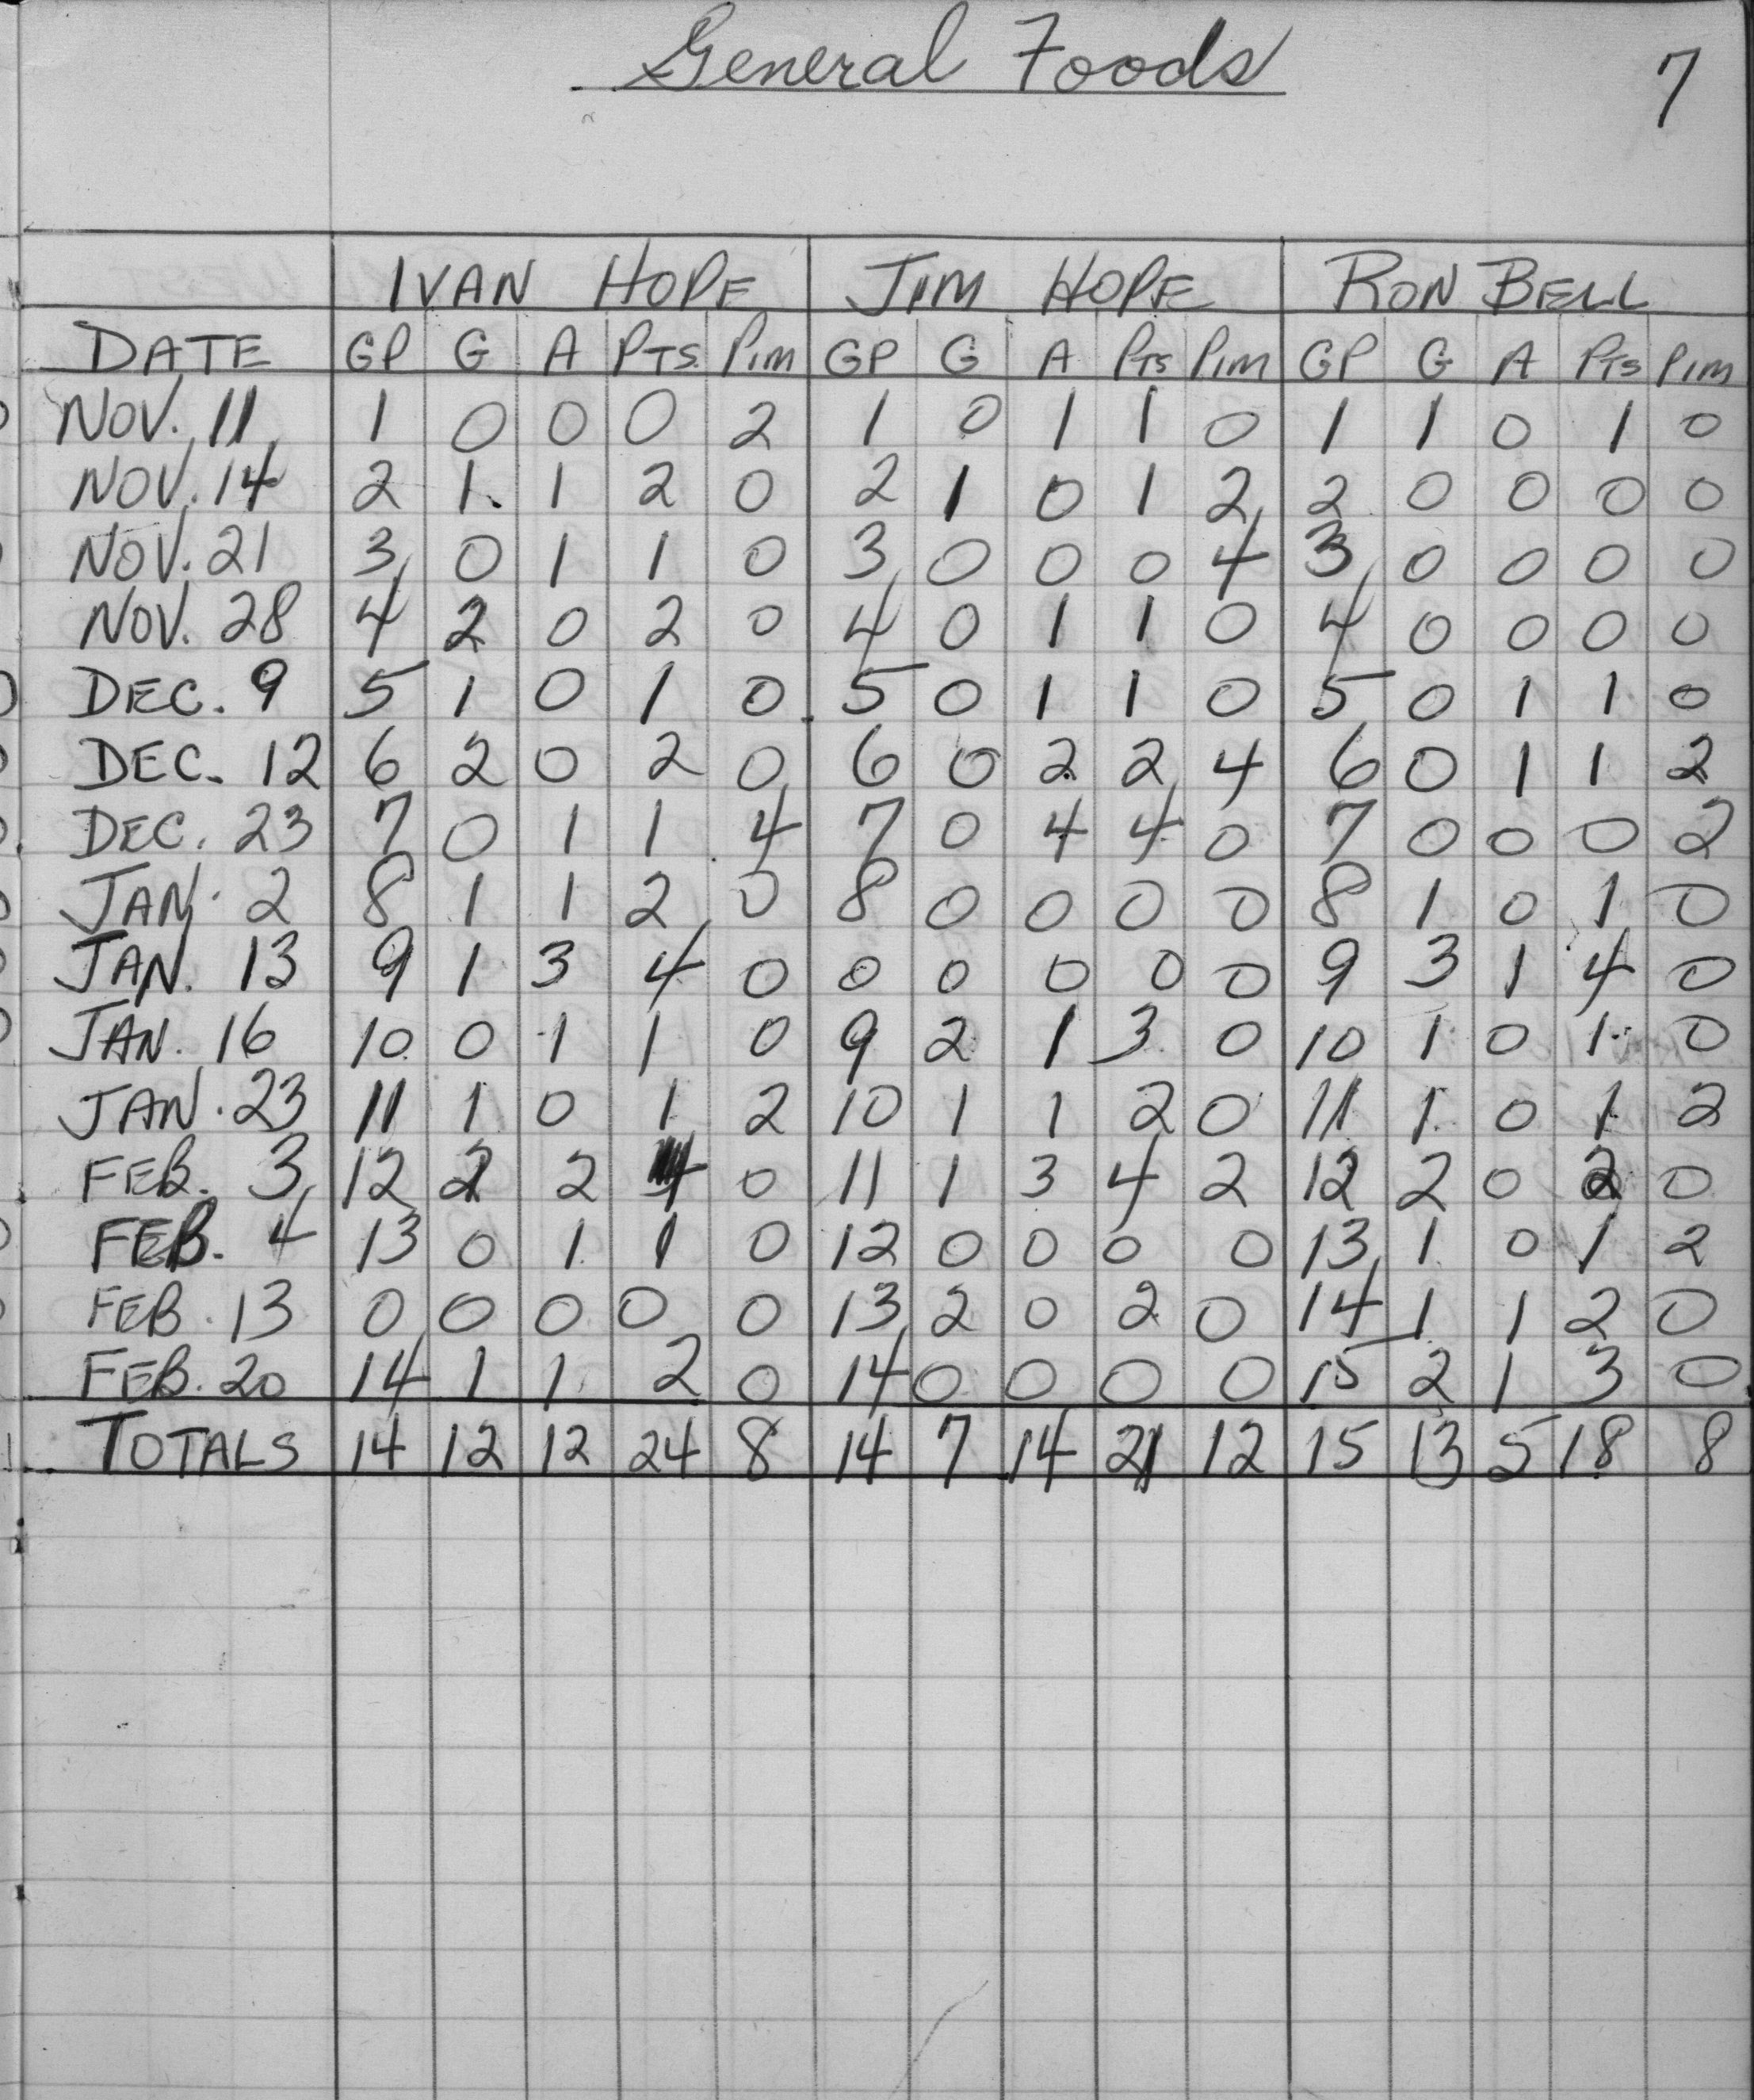 General Foods 7
IVAN HOPE JIM HOPE RON BELL
DATE GP G A PTS. PIM GP G A PTS PIM GP G A PTS PIM
NOV. 11 1 0 0 0 2 1 0 1 1 0 1 1 0 1 0
NOV. 14 2 1 1 2 0 2 1 0 1 2 2 0 0 0 0
NOV. 21 3 0 1 1 0 3 0 0 0 4 3 0 0 0 0
NOV. 28 4 2 0 2 0 4 0 1 1 0 4 0 0 0 0
DEC. 9 5 1 0 1 0 5 0 1 1 0 5 0 1 1 0
DEC. 12 6 2 0 2 0 6 0 2 2 4 6 0 1 1 2
DEC. 23 7 0 1 1 4 7 0 4 4 0 7 0 0 0 2
JAN. 2 8 1 1 2 0 8 0 0 0 0 8 1 0 1 0
JAN. 13 9 1 3 4 0 0 0 0 0 0 9 3 1 4 0
JAN. 16 10 0 1 1 0 9 2 1 3 0 10 1 0 1 0
JAN. 23 11 1 0 1 2 10 1 1 2 0 11 1 0 1 2
FEB. 3 12 2 2 4 0 11 1 3 4 2 12 2 0 2 0
FEB. 4 13 0 1 1 0 12 0 0 0 0 13 1 0 1 2
FEB. 13 0 0 0 0 0 13 2 0 2 0 14 1 1 2 0
FEB. 20 14 1 1 2 0 14 0 0 0 0 15 2 1 3 0
TOTALS 14 12 12 24 8 14 7 14 21 12 15 13 5 18 8